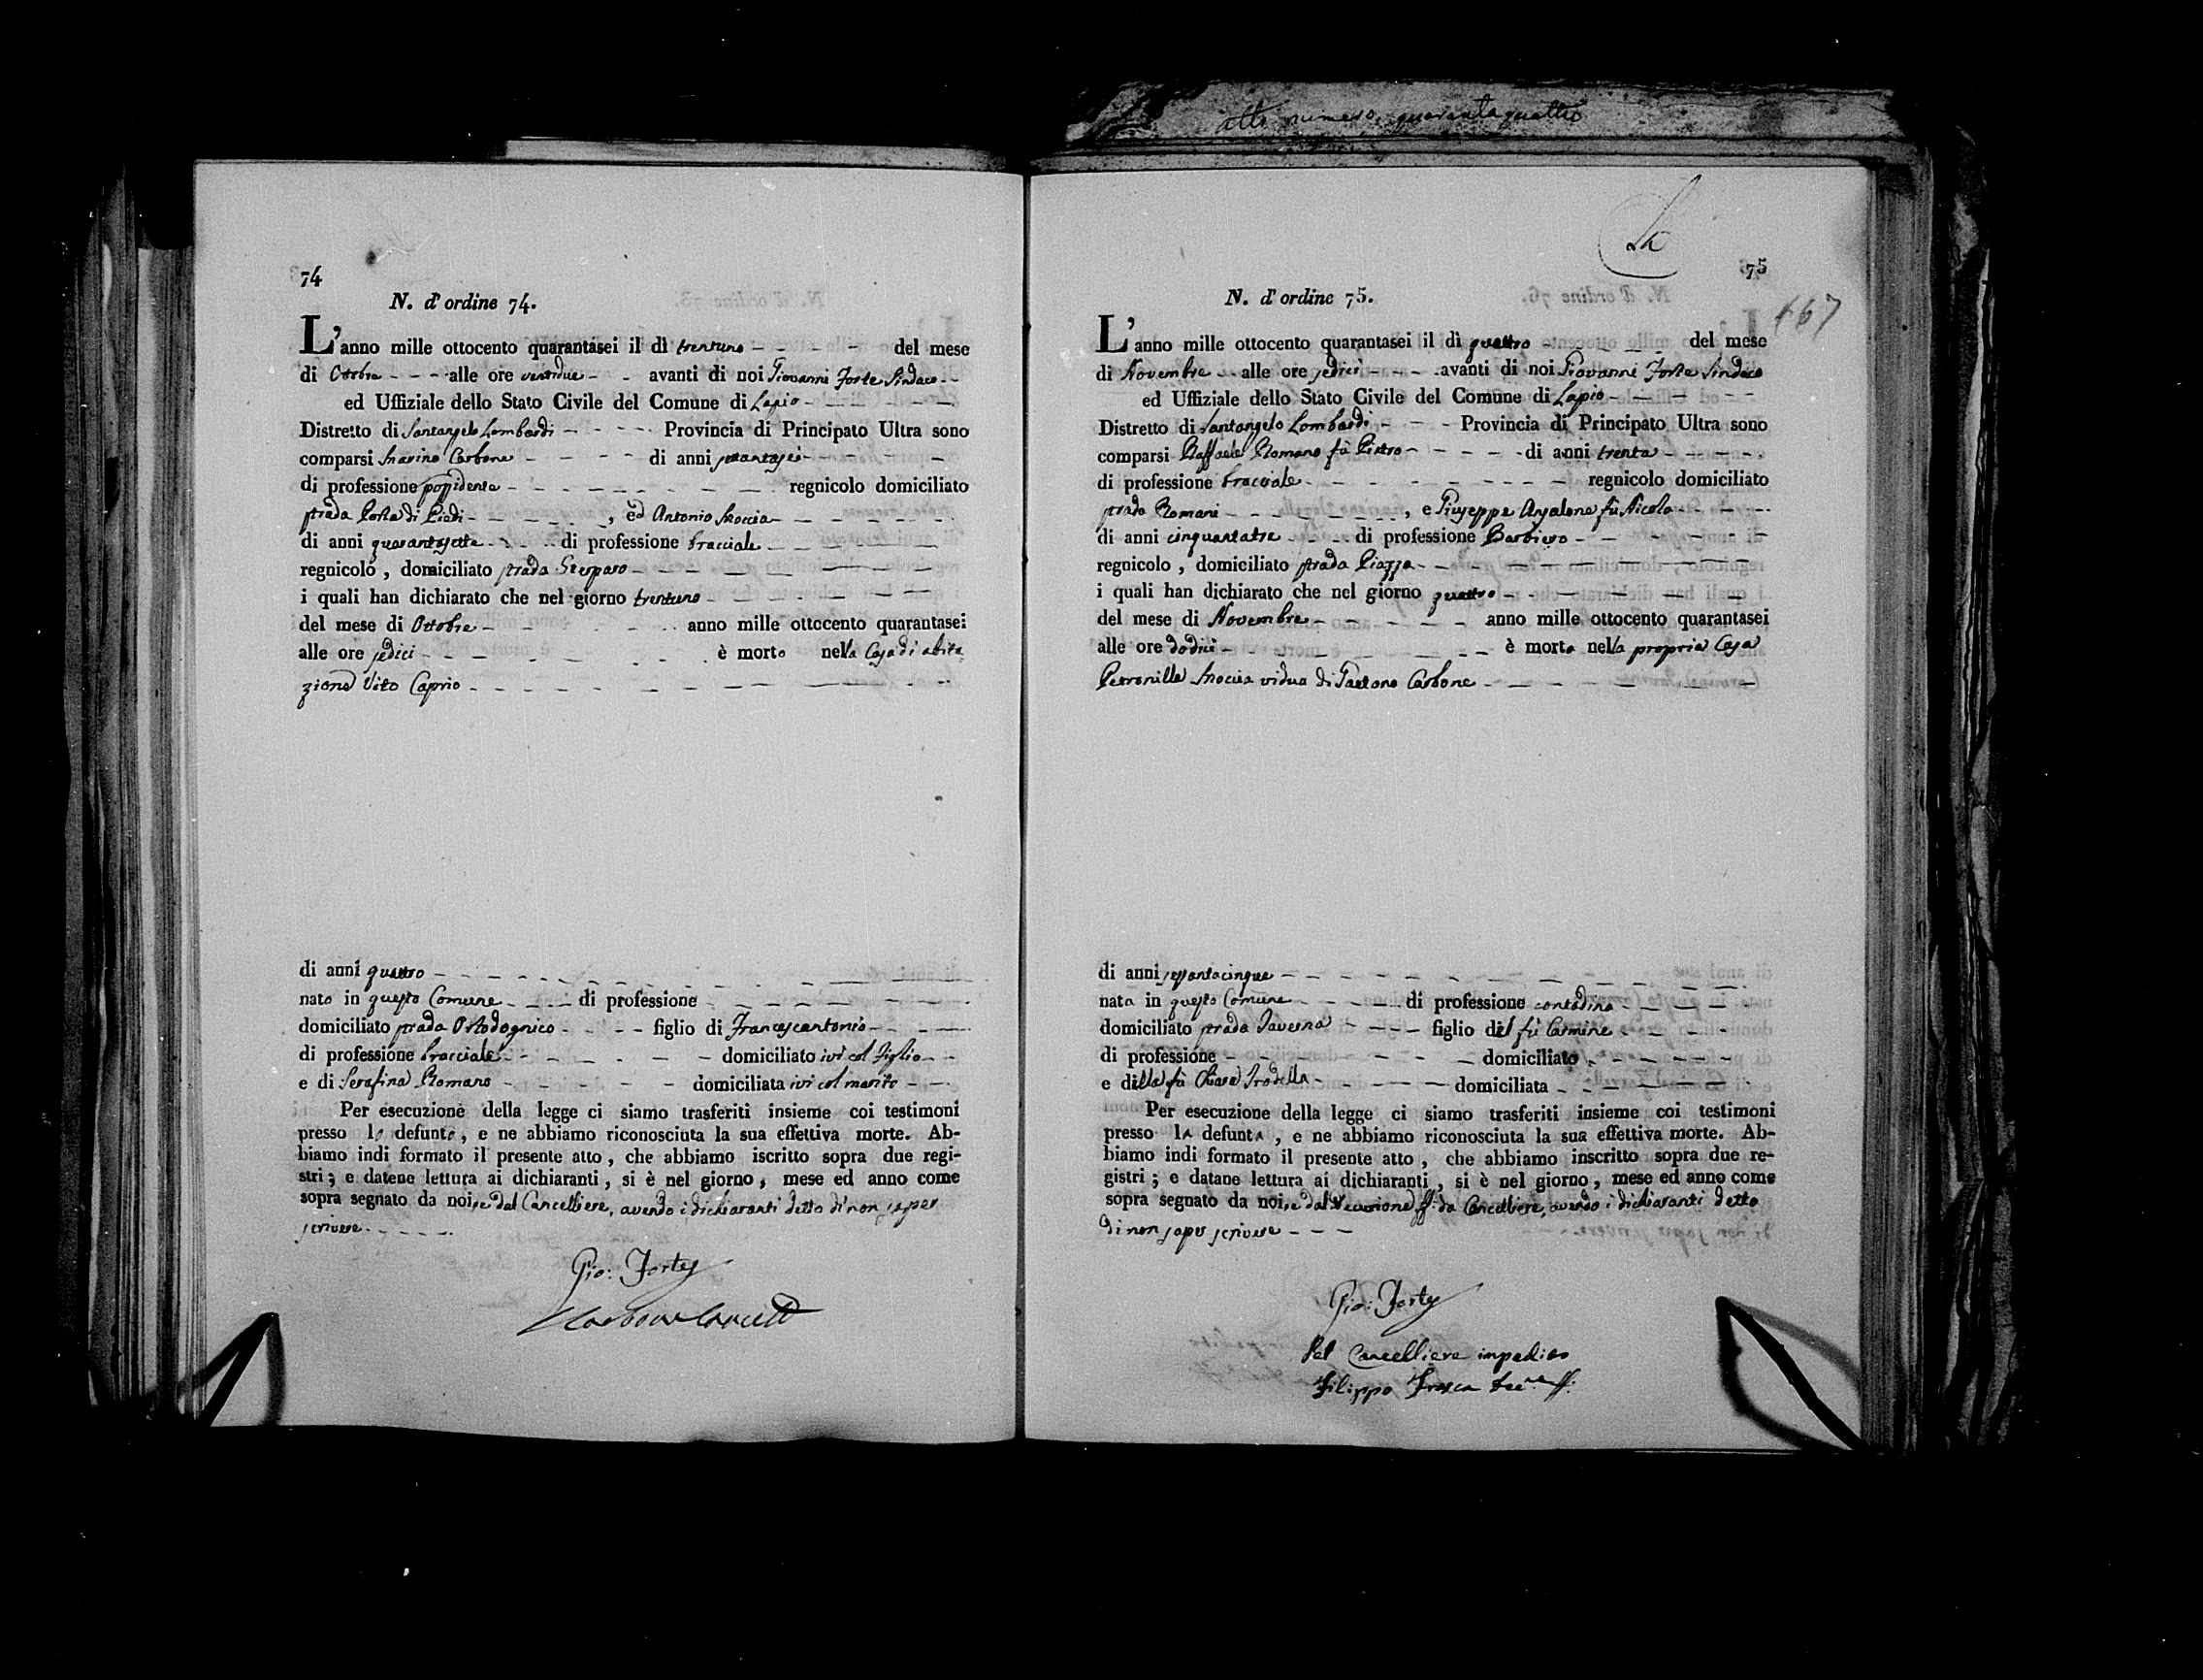 atto numero quarantaquattro
74
N. d'ordine 74.
L'anno mille ottocento quarantasei il dì trentuno del mese
di Ottobre alle ore ventidue avanti di noi Giovanni Forte Sindaco
ed Uffiziale dello Stato Civile del Comune di Lapio
Distretto di Santangelo Lombardi Provincia di Principato Ultra sono
comparsi Carbone di anni
di professione possidente regnicolo domiciliato
strada Porta di Piedi, ed Antonio
di anni quarantasette di professione bracciale
regnicolo, domiciliato strada
i quali han dichiarato che nel giorno trentuno
del mese di Ottobre anno mille ottocento quarantasei
alle ore sedici è morto nella Casa di abita
zione Vito Caprio
di anni quattro
nato in questo Comune di professione
domiciliato strada figlio di Francescantonio
di professione bracciale domiciliato ivi col figlio
e di Serafina Romano domiciliata ivi col marito
Per esecuzione della legge ci siamo trasferiti insieme coi testimoni
presso lo defunto, e ne abbiamo riconosciuta la sua effettiva morte. Ab-
biamo indi formato il presente atto, che abbiamo iscritto sopra due regi-
stri; e datene lettura ai dichiaranti, si è nel giorno, mese ed anno come
sopra segnato da noi, e dal Cancelliere, avendo i dichiaranti detto di non saper
scrivere.
Gio: Forte
Carbone Cancell
75
167
N. d'ordine 75.
L'anno mille ottocento quarantasei il dì quattro del mese
di Novembre alle ore sedici avanti di noi Giovanni Forte Sindaco
ed Uffiziale dello Stato Civile del Comune di Lapio
Distretto di Santangelo Lombardi Provincia di Principato Ultra sono
comparsi Raffaele Romano fù Pietro di anni trenta
di professione bracciale regnicolo domiciliato
strada Romani, e Giuseppe Anzalone fù Nicola
di anni cinquantatre di professione Barbiero
regnicolo, domiciliato strada Piazza
i quali han dichiarato che nel giorno quattro
del mese di Novembre anno mille ottocento quarantasei
alle ore dodici è morta nella propria Casa
Petronilla vidua di Gaetano Carbone
di anni sessantacinque
nata in questo Comune di professione contadina
domiciliato strada Taverna figlio del fù Carmine
di professione domiciliato
e della fù Chiara domiciliata
Per esecuzione della legge ci siamo trasferiti insieme coi testimoni
presso la defunta, e ne abbiamo riconosciuta la sua effettiva morte. Ab-
biamo indi formato il presente atto, che abbiamo inscritto sopra due re-
gistri; e datane lettura ai dichiaranti, si è nel giorno, mese ed anno come
sopra segnato da noi, e dal Decurione ff: da Cancelliere, avendo i dichiaranti detto
di non saper scrivere
Gio: Forte
Pel Cancelliere impedito
Filippo ff: